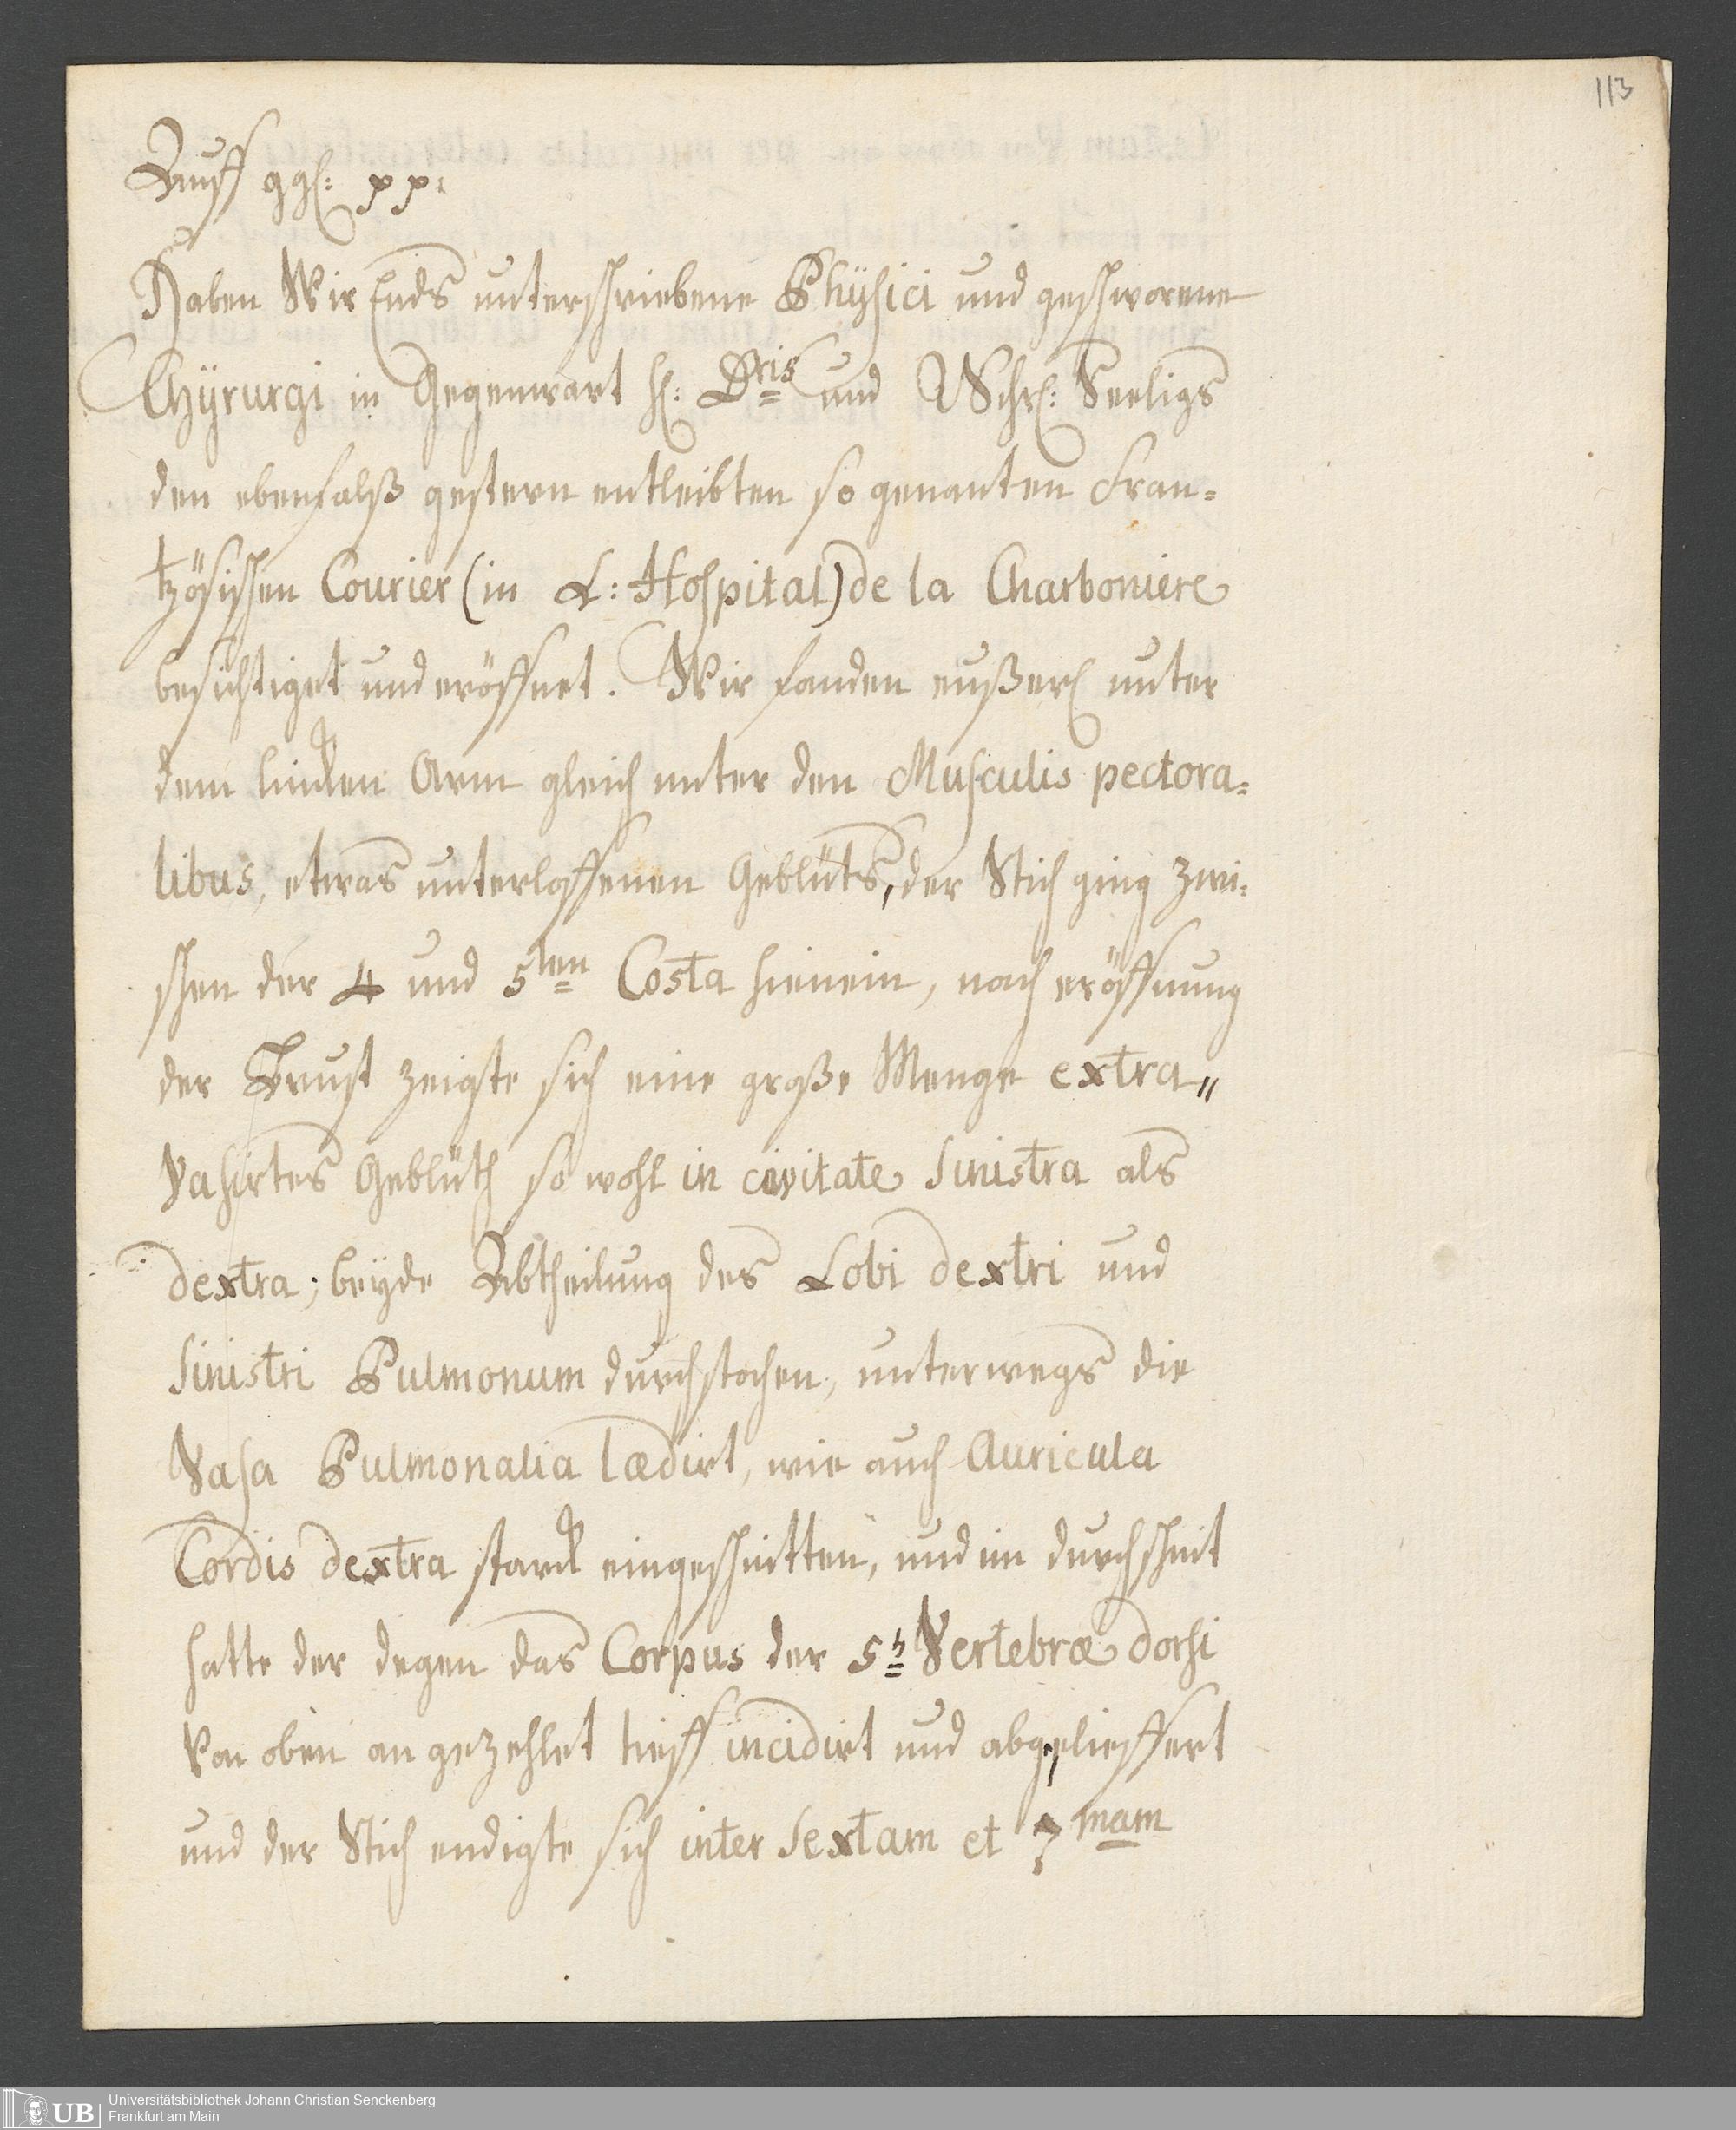 113
Auff ggl: pp:
Haben Wir Ends unterschriebene Phÿsici und geschworene
Chÿrurgi in Gegenwart H: Dris und Schr: Seeligs
den ebenfalß gestern entleibten so genanten Fran=
tzösischen Courier (in L: Hospital) de la Charboniere
besichtiget und eröffnet. Wir fanden eußerl unter
dem lincken Arm gleich unter den Musculis pectora=
libus, etwas unterloffenen Geblüts, der Stich ging zwi=
schen der 4 und 5ten Costa hienein, nach eröffnung
der Brust zeigte sich eine große Menge extra„
vasirtes Geblüth so wohl in cavitate sinistra als
dextra; beÿde Abtheilung des Lobi dextri und
sinistri Pulmonum durchstochen, unterwegs die
Vasa Pulmonalia lædirt, wie auch Auricula
Cordis dextra starck eingeschnitten, und im durchschnit
hatte der degen das Corpus der 5t Vertebræ dorsi
von oben an gezehlet tieff incidirt und abgelieffert
und der Stich endigte sich inter Sextam et 7mam
UB
Universitätsbibliothek Johann Christian Senckenberg
Frankfurt am Main